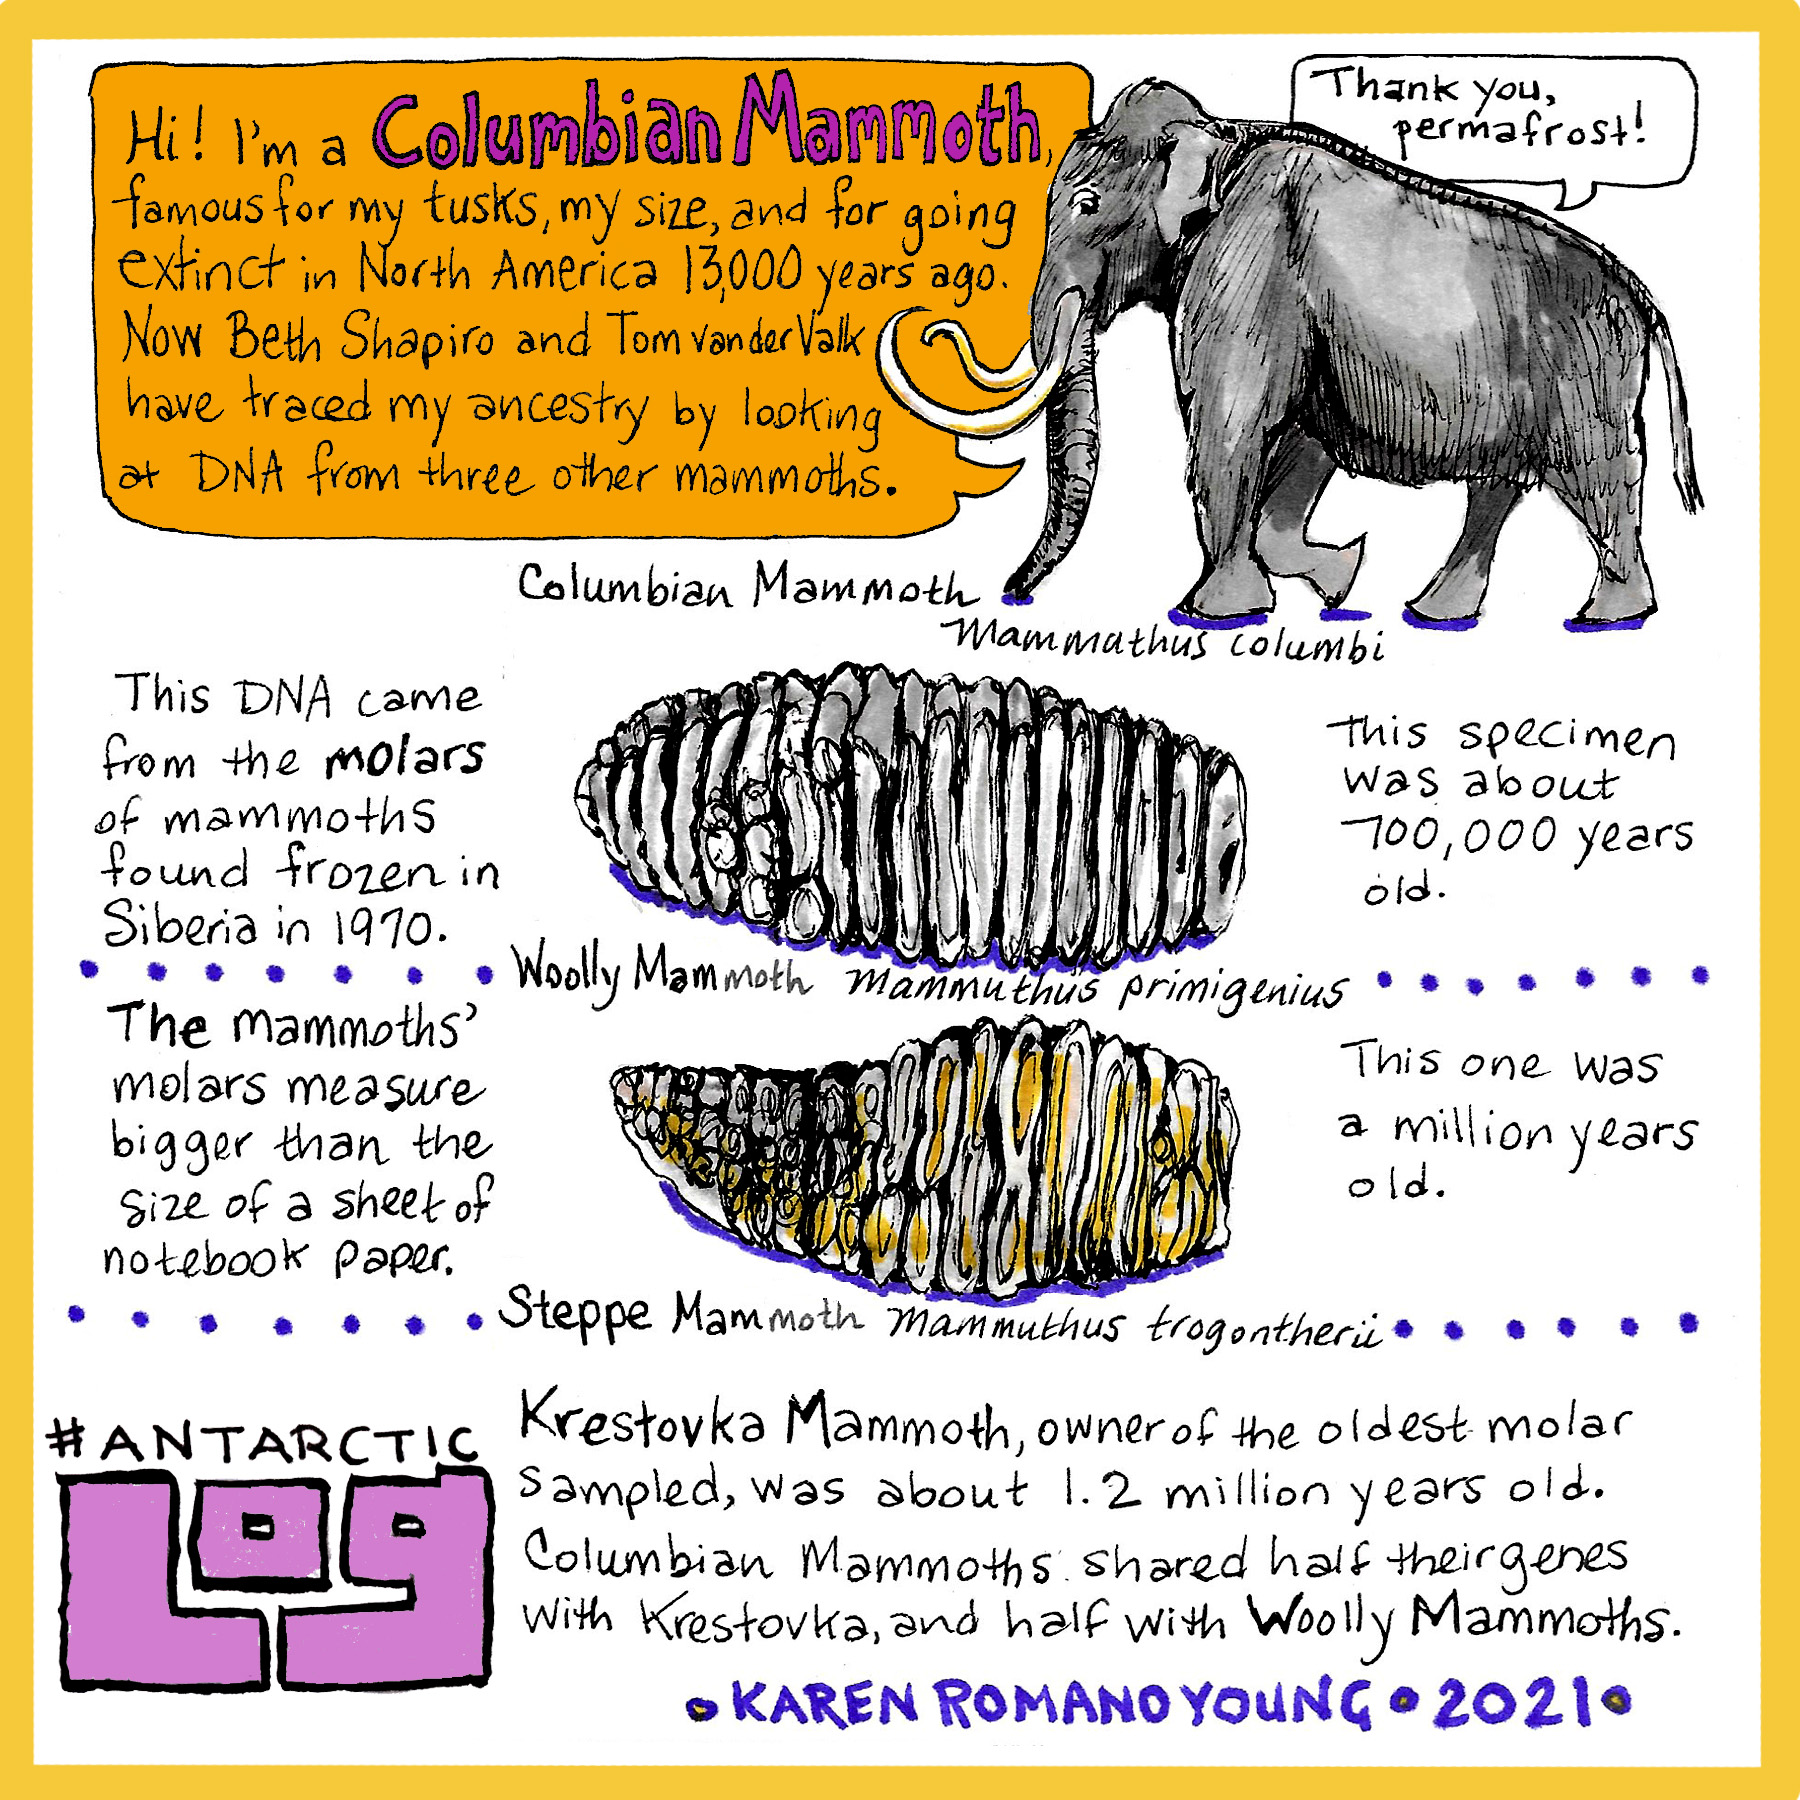 Hi! I'm a Columbian Mammoth,
famous for my tusks, my size, and for going
extinct in North America 13,000 years ago.
Now Beth Shapiro and Tom van der Valk
have traced my ancestry by looking
at DNA from three other mammoths.
Thank you,
permafrost!
Columbian Mammoth
Mammathus columbi
This DNA came
from the molars
of mammoths
found frozen in
Siberia in 1970.
This specimen
was about
700,000 years
old.
Woolly Mammoth Mammuthus primigenius
The Mammoths'
molars measure
bigger than the
size of a sheet of
notebook paper.
This one was
a million years
old.
Steppe Mammoth Mammuthus trogontherii
#ANTARCTIC
Log
Krestovka Mammoth, owner of the oldest molar
sampled, was about 1.2 million years old.
Columbian Mammoths shared half their genes
with Krestovka, and half with Woolly Mammoths.
•KAREN ROMANO YOUNG•2021•